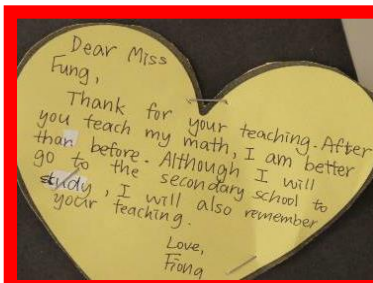 Dear Miss
Fung,
Thank for your teaching. After
you teach my math, I am better
than before. Although I will
go to the secondary school to
study, I will also remember
your teaching.
Love,
Fiona